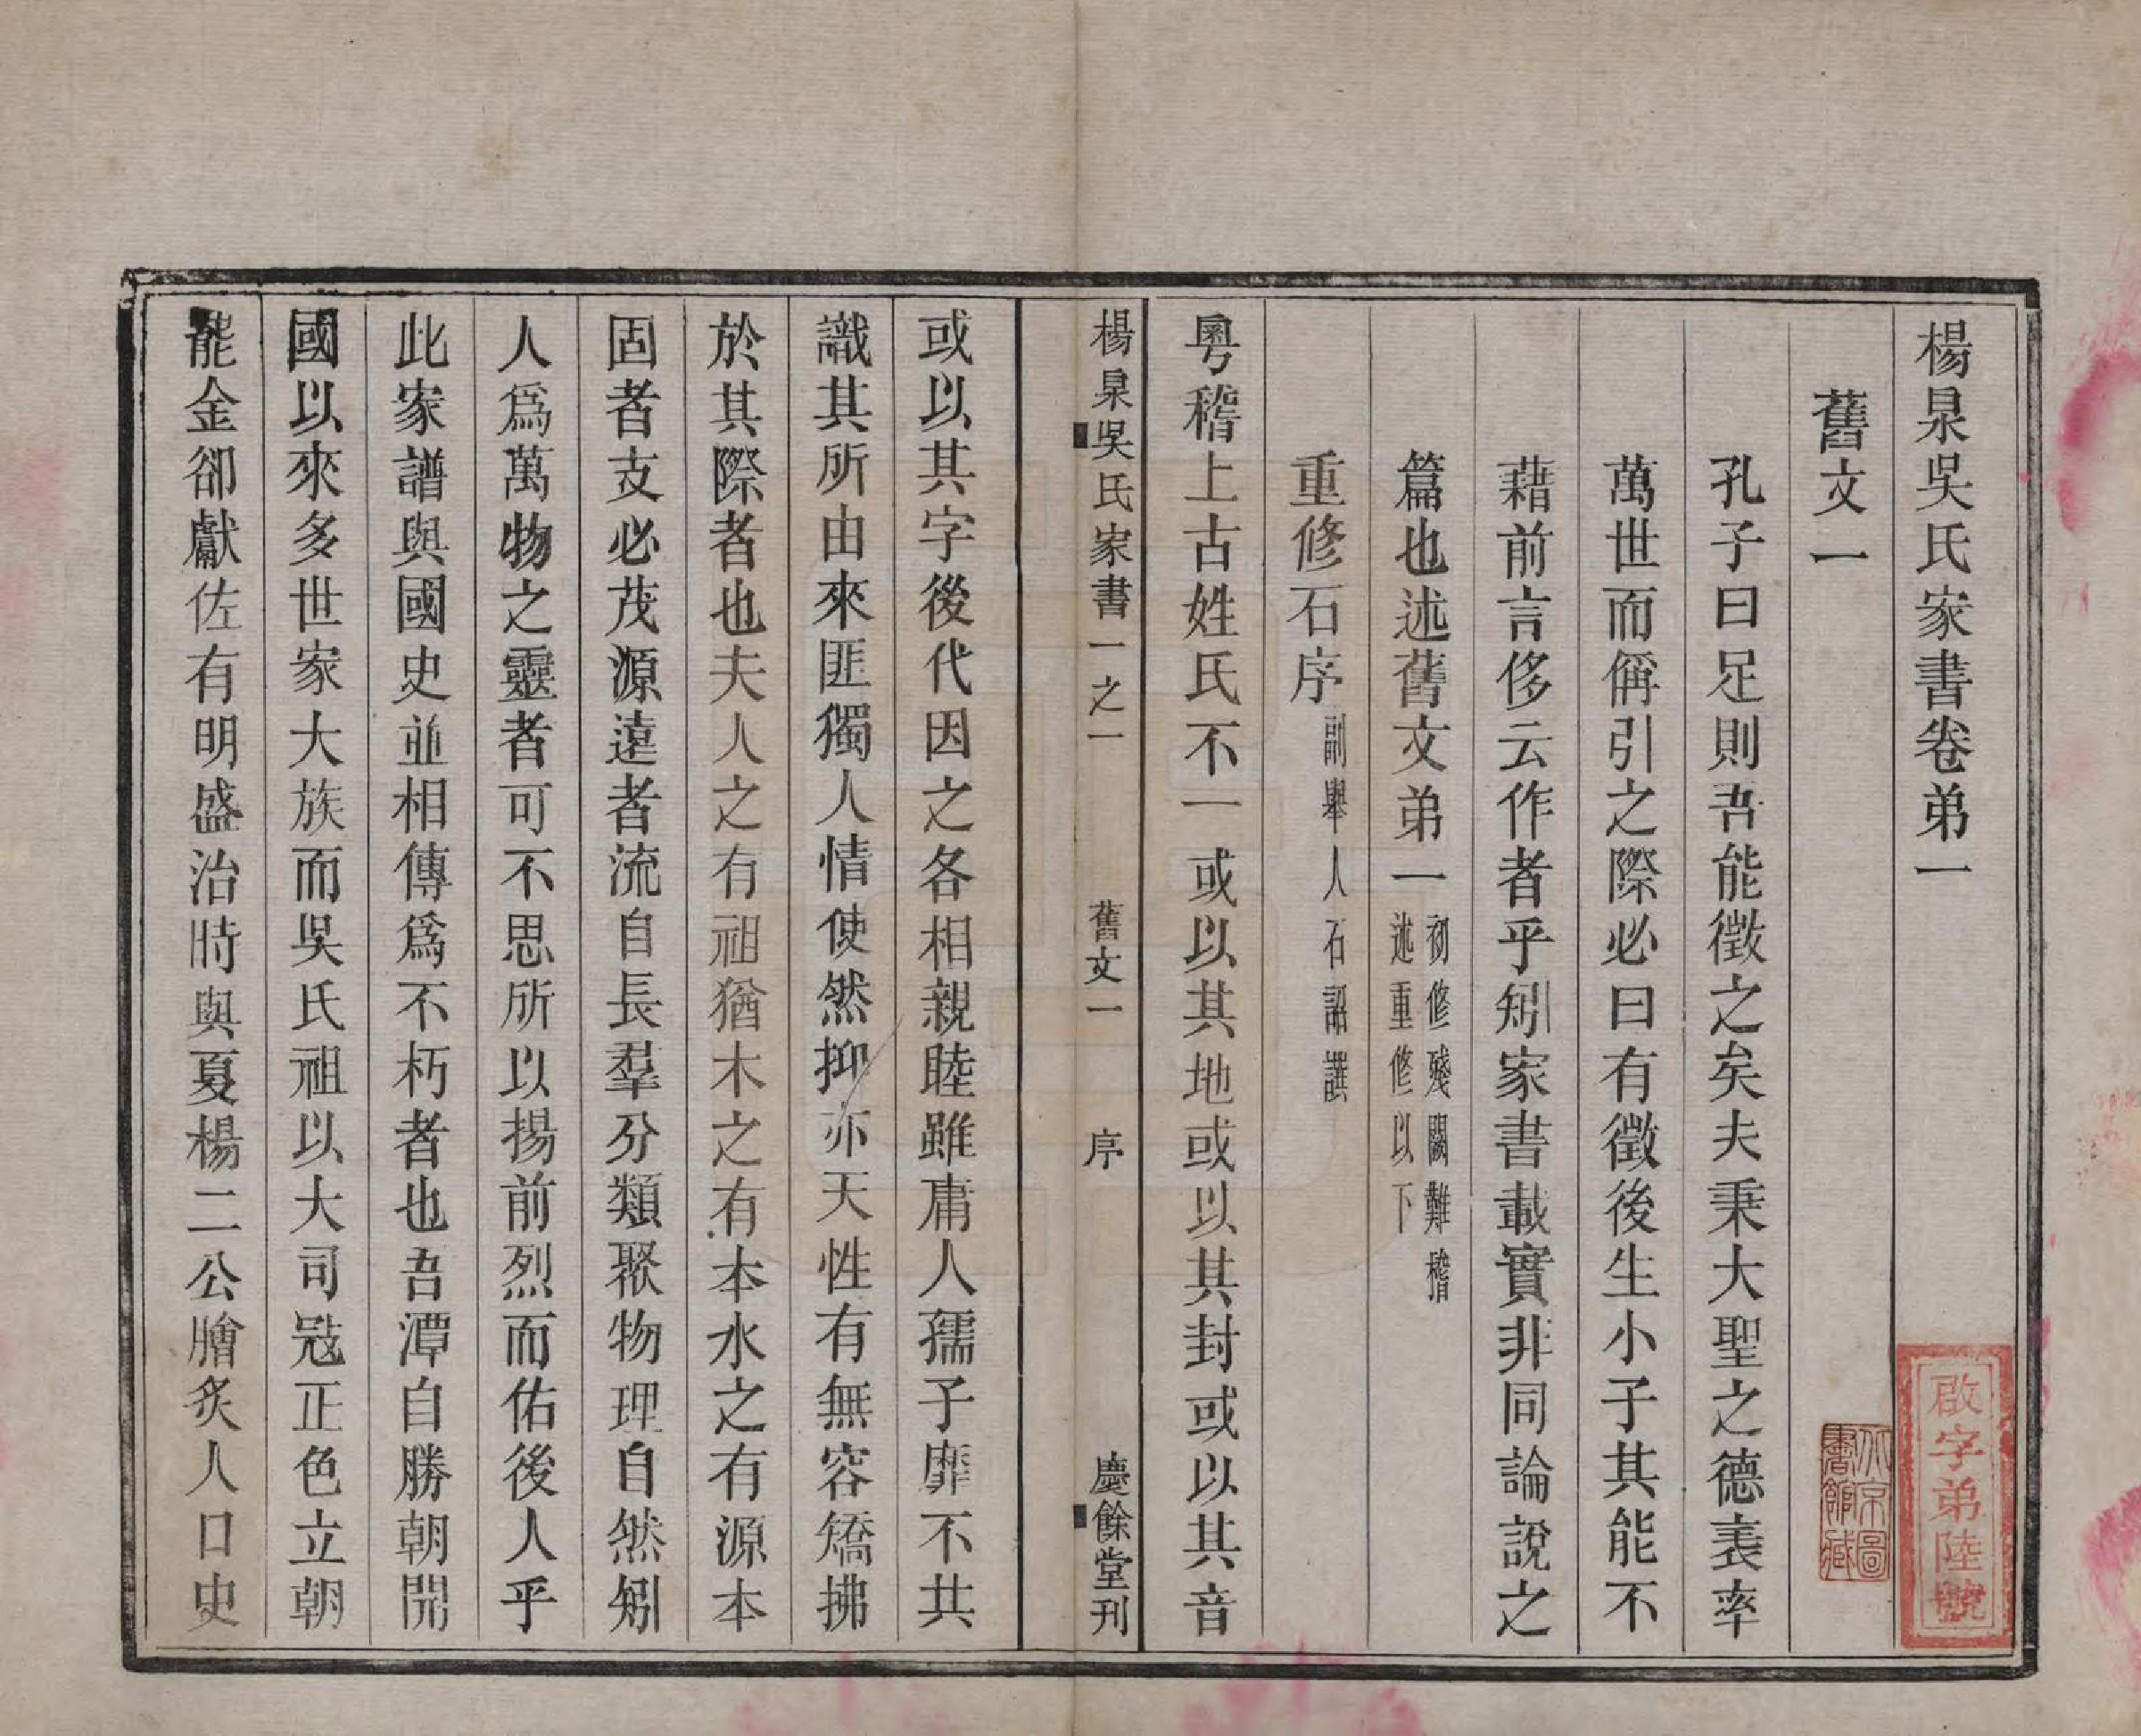 楊泉吳氏家書卷弟一
舊文一
孔子曰足則吾能徵之矣夫秉大聖之德表率
萬世而稱引之際必曰有徵後生小子其能不
藉前言侈云作者乎矧家書載實非同論說之
篇也述舊文弟一初修殘闕難稽
述重修以下
重修石序副舉人石詔譔
粵稽上古姓氏不一或以其地或以其封或以其音
楊泉吳氏家書一之一 舊文一 序 慶餘堂刊
或以其字後代因之各相親睦雖庸人孺子靡不共
識其所由來匪獨人情使然抑亦天性有無容矯拂
於其際者也夫人之有祖猶木之有本水之有源本
固者支必茂源遠者流自長羣分類聚物理自然矧
人為萬物之靈者可不思所以揚前烈而佑後人乎
此家譜與國史並相傳為不朽者也吾潭自勝朝開
國以來多世家大族而吳氏祖以大司寇正色立朝
能金卻獻佐有明盛治時與夏楊二公膾炙人口史
啟字弟陸號
北京圖
書館藏